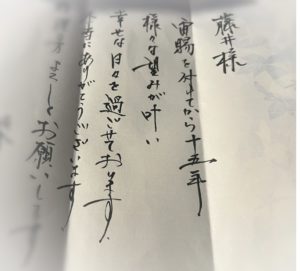 藤井様
宙賜を付けてから十五年
様々な望みが叶い
幸せな日々を過ごせております。
ありがとうございます
よろしくお願いします